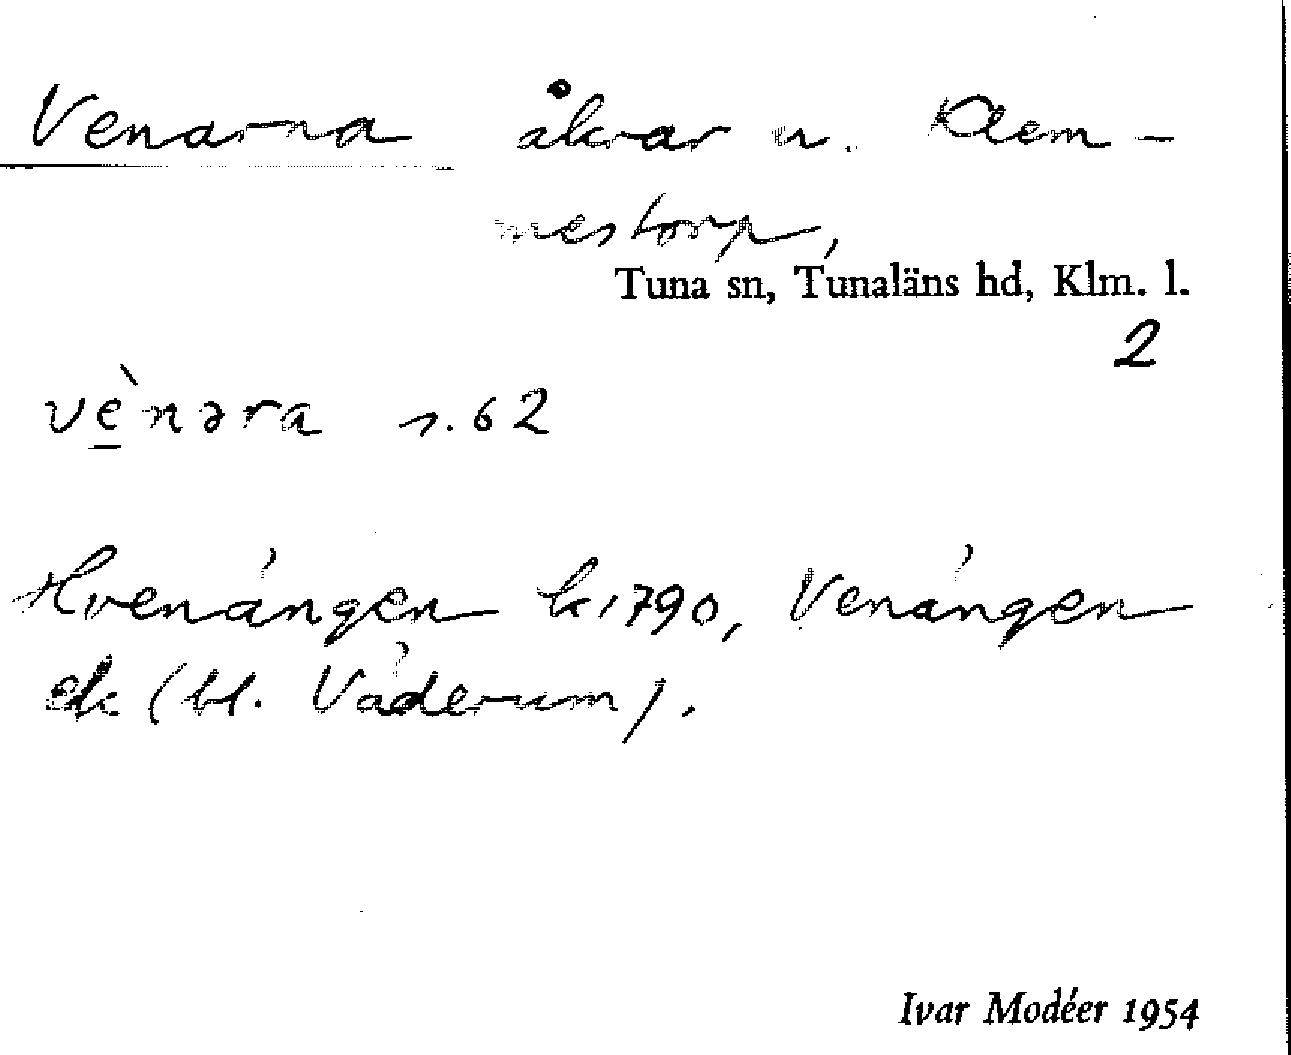 Venarna åkrar u. Klem-
mestorp,
Tuna sn, Tunaläns hd, Klm. l.
2
vè̱nəra s. 62
Hvenängen k 1790, Venängen
ek (bl. Väderum).
Ivar Modéer 1954